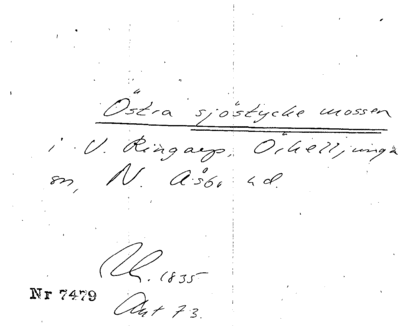 Östra sjöstycke mossen
i V. Ringarp, Örkelljunga
sn, N. Åsbo hd.
1835
Nr 7479
Akt 73.